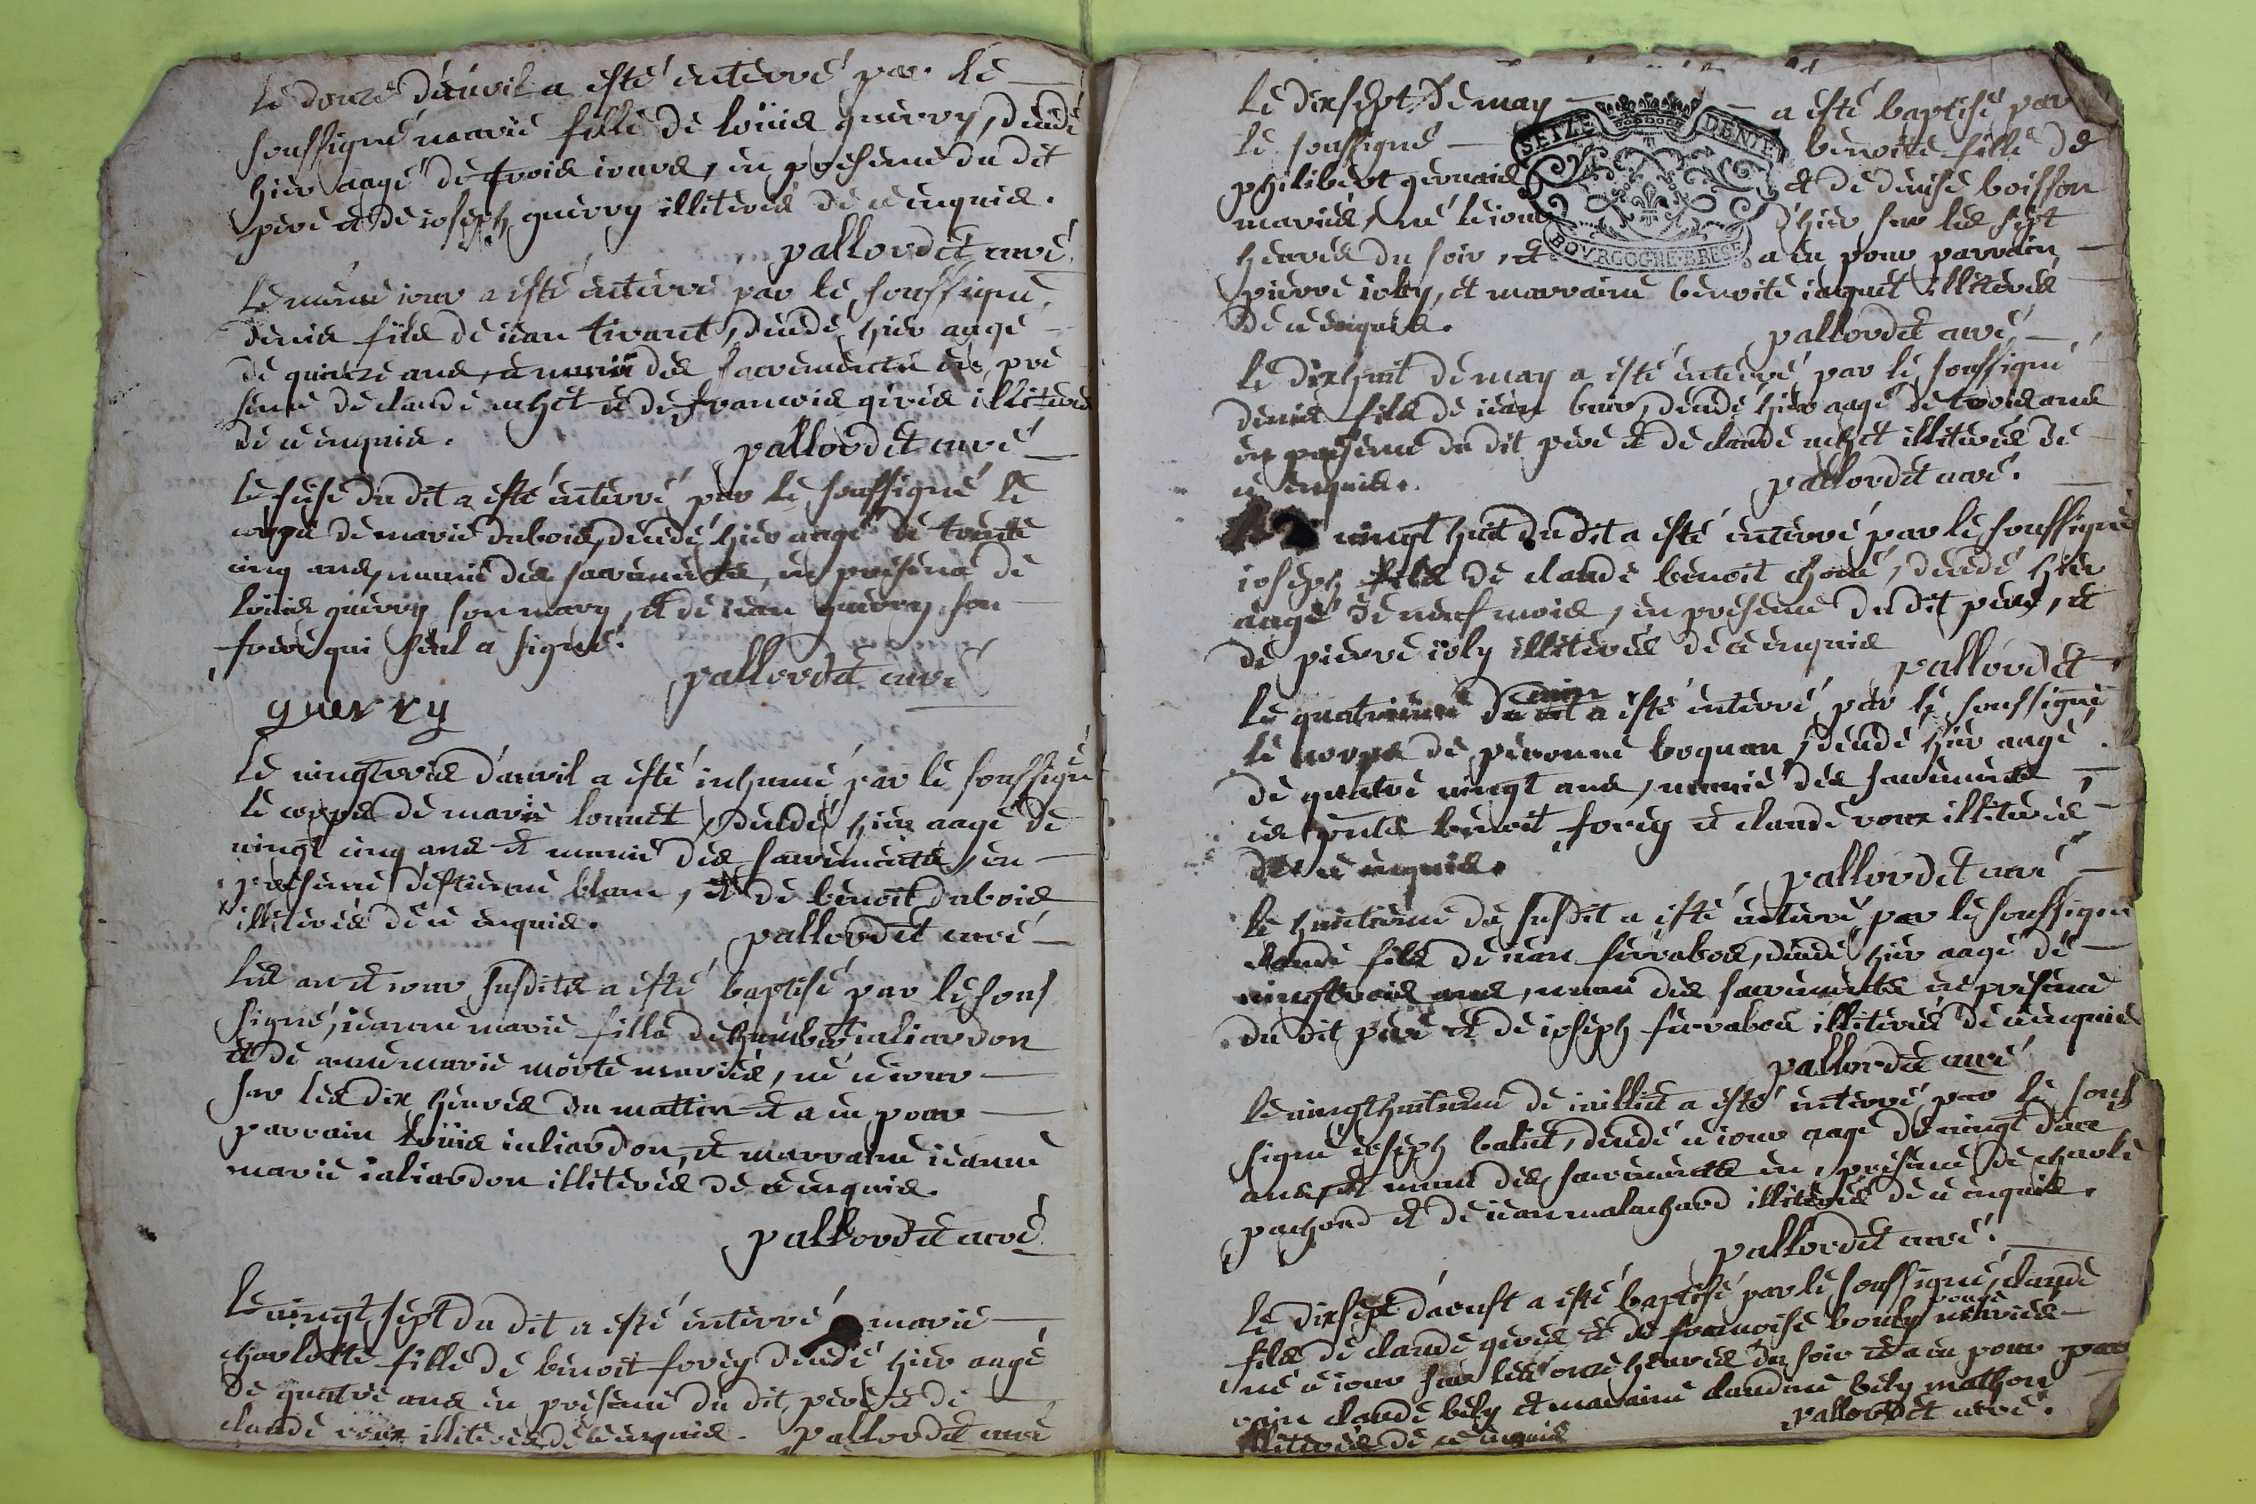 le douze d'auvril a esté enterré par le
soussigné marie fille de loüis guerry, decedé
hier aagé de trois iours, en presence du dit
pere et de ioseph guerry illiterés de ce enquis.
pallordet curé
le même iour a esté enterré par le soussigné,
denis fils de iean tirant, decedé hier aagé
de quinze ans, et munit des sacrements en pre
sence de claude et de francois gerés illiterés
de ce enquis.
pallordet curé
le seise du dit a esté enterré par le soussigné le
corps de marie dubois, decedé hier aagé de trente
cinq ans, munie des sacrements, en presence de
loüis guerry son mary, et de iean guerry son
frere qui seul a signé.
pallordet curé
guerry
le vingtrois d'auvril a esté inhumé par le soussigné
le corps de marie louuet, decedé hier aagé de
vingt cinq ans et munie des sacrements, en
presence d'estienne blanc, et de benoit dubois
illiterés de ce enquis.
pallordet curé
les an et iour susdits a esté baptisé par le sous
signé, ieanne marie fille de humbert ialiardon
et de anne marie morte mariés, né ce iour
sur les dix heures du mattin et a eu pour
parrain loüis iuliardon, et marraine ieanne
marie ialiardon illiterés de ce enquis.
pallordet curé
le vingt sept du dit a esté enterré marie
charlotte fille de benoit forey decedé hier aagé
de quatre ans en presence du dit pere et de
claude roux illiterés de ce enquis. pallordet curé
le dixsept de may a esté baptisé par
le soussigné benoite fille de
philibert gervais et de denise boisson
mariés, né le iour d'hier sur les sept
heures du soir, et a eu pour parrain
pierre ioly, et marraine benoite iaquet illiterés
de ce enquis.
pallordet curé
SEIZE DENIE
BOVRGOGNE BRESSE
le dixhuit de may a esté enterré par le soussigné
denis fils de iean decedé hier aagé de trois ans
en presence du dit pere et de claude illiterés de
ce enquis.
pallordet curé.
vingt huit du dit a esté enterré par le soussigné
ioseph fils de claude benoit decedé hier
aagé de neuf mois, en presence du dit pere, et
de pierre ioly illiterés de ce enquis
pallordet
le quatrieme de iuin a esté enterré par le soussigné
le corps de peronne boquan, decedé hier aagé
de quatre vingt ans, munie des sacremens
es pnts benoit forey et claude roux illiterés
de ce enquis.
pallordet curé
le huictieme du susdit a esté enterré par le soussigné
claude fils de iean ferrabos, decedé hier aagé de
vingtrois ans, muni des sacrements en presence
du dit pere et de ioseph ferrabos illiterés de ce enquis
pallordet curé
le vingthuitieme de iuilliet a esté enterré par le sous
signé ioseph balut, decedé ce iour aagé de vingt deux
ans, et muni des sacrements en presence de charle
pachond et de iean malachard illiterés de ce enquis.
pallordet curé.
le dixsept d'aoust a esté baptisé par le soussigné, claude
fils de claude gerés et de francoise mariés
né ce iour sur les onze heures du soir et a eu pour par
rain claude bely et maraine claudine bely mathon
illiterés de ce enquis
pallordet curé.